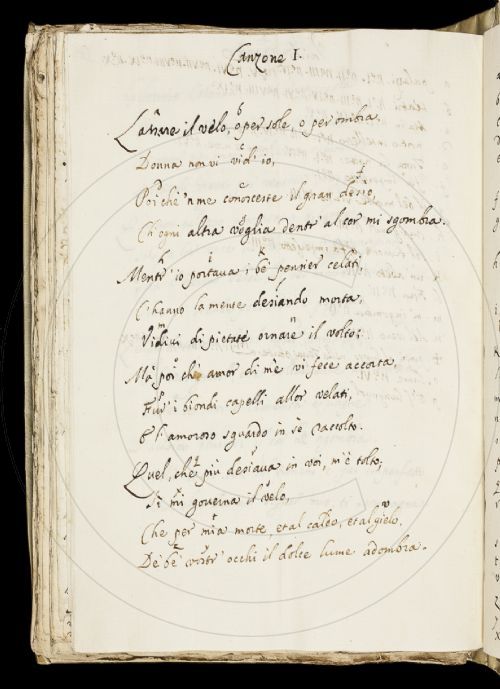 Canzone I.
Lassare il velo, o per sole, o per ombra,
Donna non vi vid' io,
Poi che 'n me conosceste il gran desio,
Ch' ogni altra voglia dentr' al cor mi sgombra.
Mentr' io portava i be' pensier celati,
C' hanno la mente desiando morta,
Vidivi di pietate ornare il volto:
Ma poi ch' amor di me vi fece accorta,
Fur' i biondi capelli allor velati,
E l' amoroso sguardo in se raccolto.
Quel, che più desiava in voi, m' è tolto.
Si mi governa il velo,
Che per mia morte, et al caldo, et al gielo,
De' be' vostr' occhi il dolce lume adombra.